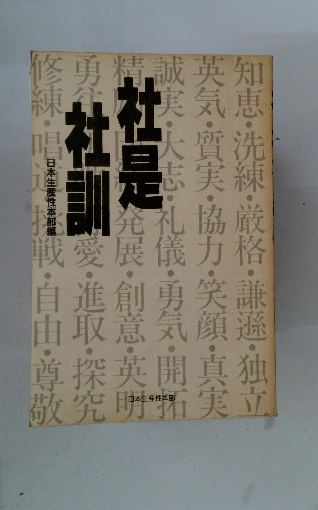 社是
社訓
日本生産性本部編
知恵・洗練・厳格・謙遜・独立
英気・質実・協力・笑顔・真実
誠実・大志・礼儀・勇気・開拓
発展・創意・英明
愛・進取・探究
修練・唱道・挑戦・自由・尊敬
日本生産性本部